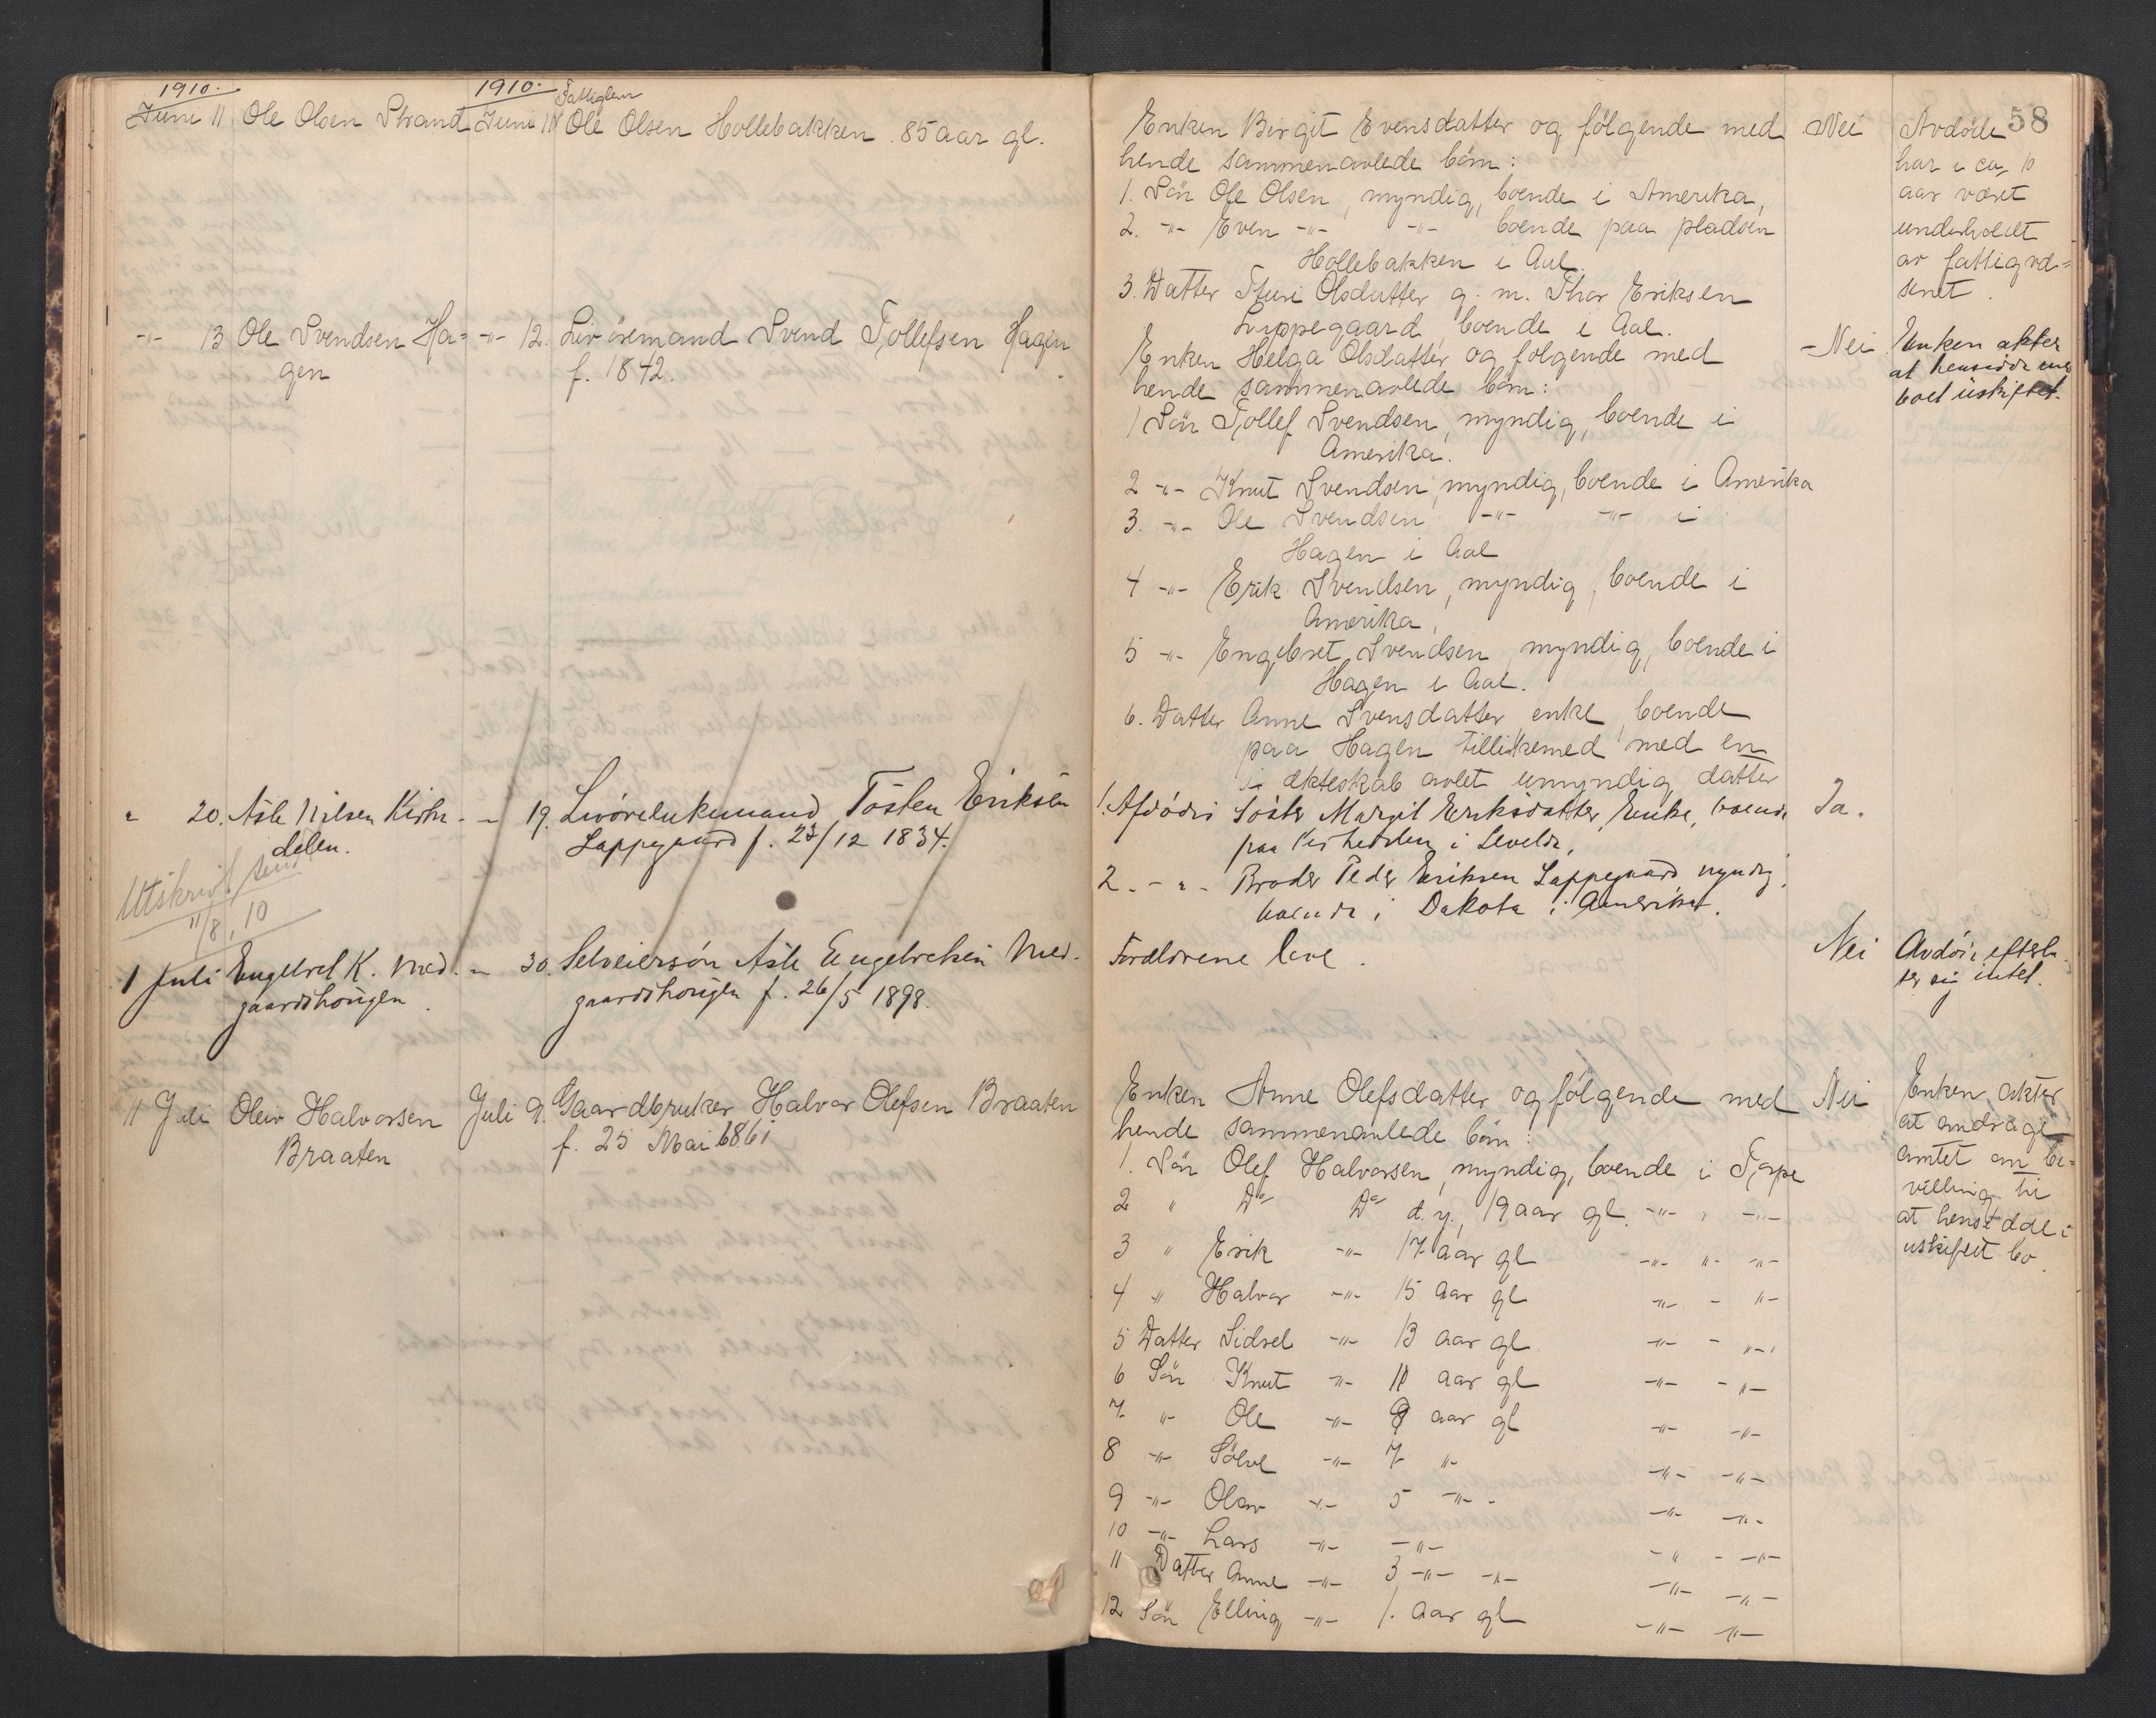 58
1910.
1910.
Juni 11 Ole Olsen Strand Juni 11 Fattiglem Ole Olsen Hollebakken 85 aar gl.
Enken Birgit Evensdatter og følgende med Nei Avdøde
hende sammenavlede börn: har i ca. 10
1. Sön Ole Olsen, myndig, boende i Amerika, aar været
2. -"- Even -"- -"- boende paa pladsen underholdt
Hollebakken i Aal. av fattigvæ=
3. Datter Sturi Olsdatter g. m. Thor Eriksen senet.
Lappegaard, boende i Aal.
-"- 13 Ole Svendsen Ha= -"- 12. Livöremand Svend Tollefsen Hagen
gen f. 1842.
Enken Helga Olsdatter og følgende med - Nei Enken akter
hende sammenavlede börn: at hensidde med
1 Sön Tollef Svendsen, myndig, boende i boet uskiftet.
Amerika.
2 -"- Knut Svendsen, myndig, boende i Amerika
3. -"- Ole Svendsen, -"- -"- i
Hagen i Aal
4 -"- Erik Svendsen, myndig, boende i
Amerika,
5 -"- Engebret Svendsen, myndig, boende i
Hagen i Aal.
6. Datter Anne Svensdatter enke, boende
paa Hagen tillikemed med en
i ekteskab avlet umyndig datter
" 20. Asle Nilsen Kirke- - 19. Livörelukemand Tosten Eriksen
delen. Lappegaard f. 23/12 1834.
Utskrivt sent
11/8. 10
1. Afdödes Söster Margit Eriksdatter, Enke, boende Ja.
paa Kirkedelen i Leveld,
2. - " - Broder Peder Eriksen Lappegaard myndig,
boende i Dakota i Amerika.
1 Juli Engebret K. Med- " 30. Selveiersön Asle Engebretsen Med-
gaardshougen. gaardshougen f. 26/5 1898.
Forældrene leve. Nei Avdöde efterla-
ter sig intet.
11 Juli Oleiv Halvorsen Juli 9. Gaardbruker Halvor Olefsen Braaten
Braaten f. 25 Mai 1861
Enken Anne Olefsdatter og følgende med Nei Enken akter
hende sammenavlede börn: at andrage
1. Sön Olef Halvorsen, myndig, boende i Torpe amtet om be=
2 " Do Do d. y., 19 aar gl. -"- " -"- villing til
3 " Erik -"- 17 aar gl -"- "- -"- at hensidde i
4 " Halvor -"- 15 aar gl -"- - "- uskiftet bo.
5 Datter Sidsel -"- 13 aar gl -"- - "-
6 Sön Knut -"- 11 aar gl -"- - "-
7 "- Ole -"- 9 aar gl -"- -"-
8 -"- Sölve -"- 7 "- -"- -"-
9 -"- Olav -"- 5 -"- -"- -"-
10 -"- Lars -"- -"- -"- - -"-
11 Datter Anne -"- 3 -"- -"- -"- -"-
12 Sön Elling -"- 1. aar gl -"- -"-